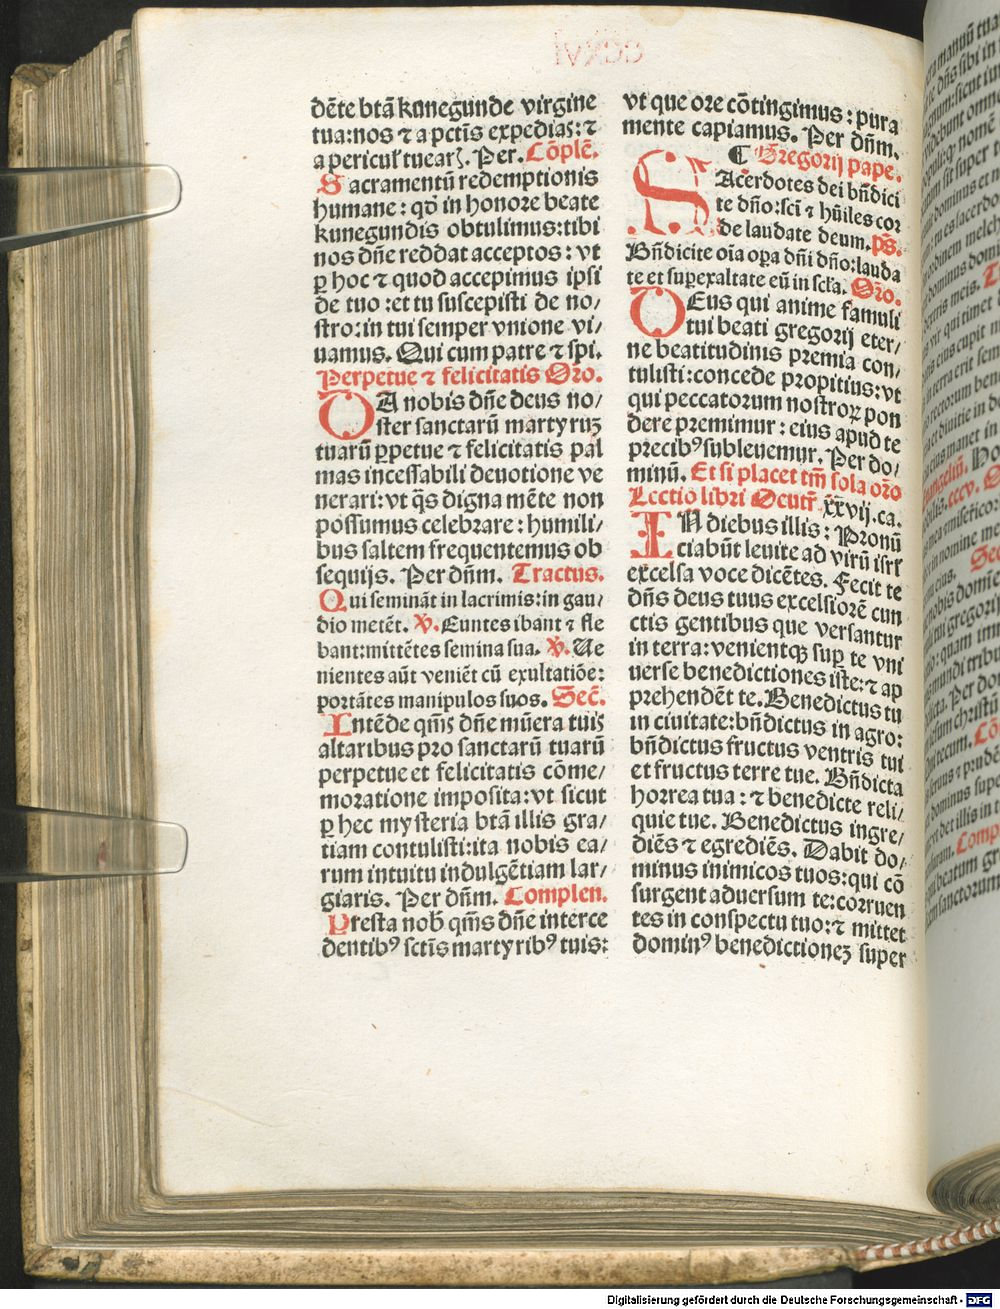 dēte btā kunegunde virgine
tua: nos ⁊ a pctīs expediaſ: ⁊
a pericuł tuear. Per. Cōplē.
Sacramentū redemptionis
humane: qđ in honore beate
kunegundis obtulimus: tibi
nos dñe reddat acceptos: vt
ꝑ hoc ⁊ quod accepimus ipſi
de tuo: et tu ſuſcepiſti de no/
ſtro: in tui ſemper vnione vi/
uamus. Qui cum patre ⁊ ſpi.
Perpetue ⁊ felicitatis Oro.
DA nobis dñe deus no/
ſter ſanctarū martyruꝫ
tuarū ꝑpetue ⁊ felicitatis pal
mas inceſſabili deuotione ve
nerari: vt q̄s digna mēte non
poſſumus celebrare: humili/
bus ſaltem frequentemus ob
ſequijs. Per dñm. Tractus.
Qui ſemināt in lacrimis: in gau/
dio metēt. ℣. Euntes ibant ⁊ fle
bant: mittētes ſemina ſua. ℣. Ue
nientes aūt veniēt cū exultatiōe:
portātes manipulos ſuos. Secř.
Intēde qm̄s dñe mūera tuis
altaribus pro ſanctarū tuarū
perpetue et felicitatis cōme/
moratione impoſita: vt ſicut
ꝑ hec myſteria btā illis gra/
tiam contuliſti: ita nobis ea/
rum intuitu indulgētiam lar/
giaris. Per dñm. Complen.
Preſta nob̄ qm̄s dñe interce
dentibꝰ ſctīs martyribꝰ tuis:
vt que ore cōtingimus: pura
mente capiamus. Per dñm.
⁋ Gregorij pape.
SAcerdotes dei bñdici
te dño: ſcī ⁊ hūiles cor
de laudate deum. pš.
Bñdicite oīa oꝑa dñi dño: lauda
te et ſuꝑexaltate eū in ſcła. Oro.
DEus qui anime famuli
tui beati gregorij eter/
ne beatitudinis premia con/
tuliſti: concede propitius: vt
qui peccatorum noſtroꝝ pon
dere premimur: eius apud te
precibꝰ ſubleuemur. Per do/
minū. Et si placet tm̄ sola oro
Lectio libri Ecctī xxvij. ca.
IN diebus illis: Pronū
ciabūt leuite ad virū iſrł
excelſa voce dicētes. Fecit te
dñs deus tuus excelſiorē cun
ctis gentibus que verſantur
in terra: venientqꝫ ſuꝑ te vni
uerſe benedictiones iſte: ⁊ ap
prehendēt te. Benedictus tu
in ciuitate: bñdictus in agro:
bñdictus fructus ventris tui
et fructus terre tue. Bñdicta
horrea tua: ⁊ benedicte reli/
quie tue. Benedictus ingre/
diēs ⁊ egrediēs. Dabit do/
minus inimicos tuos: qui cō
ſurgent aduerſum te: corruen
tes in conſpectu tuo: ⁊ mittet
dominꝰ benedictioneꝫ ſuper
Digitalisierung gefördert durch die Deutsche Forschungsgemeinschaft - DFG